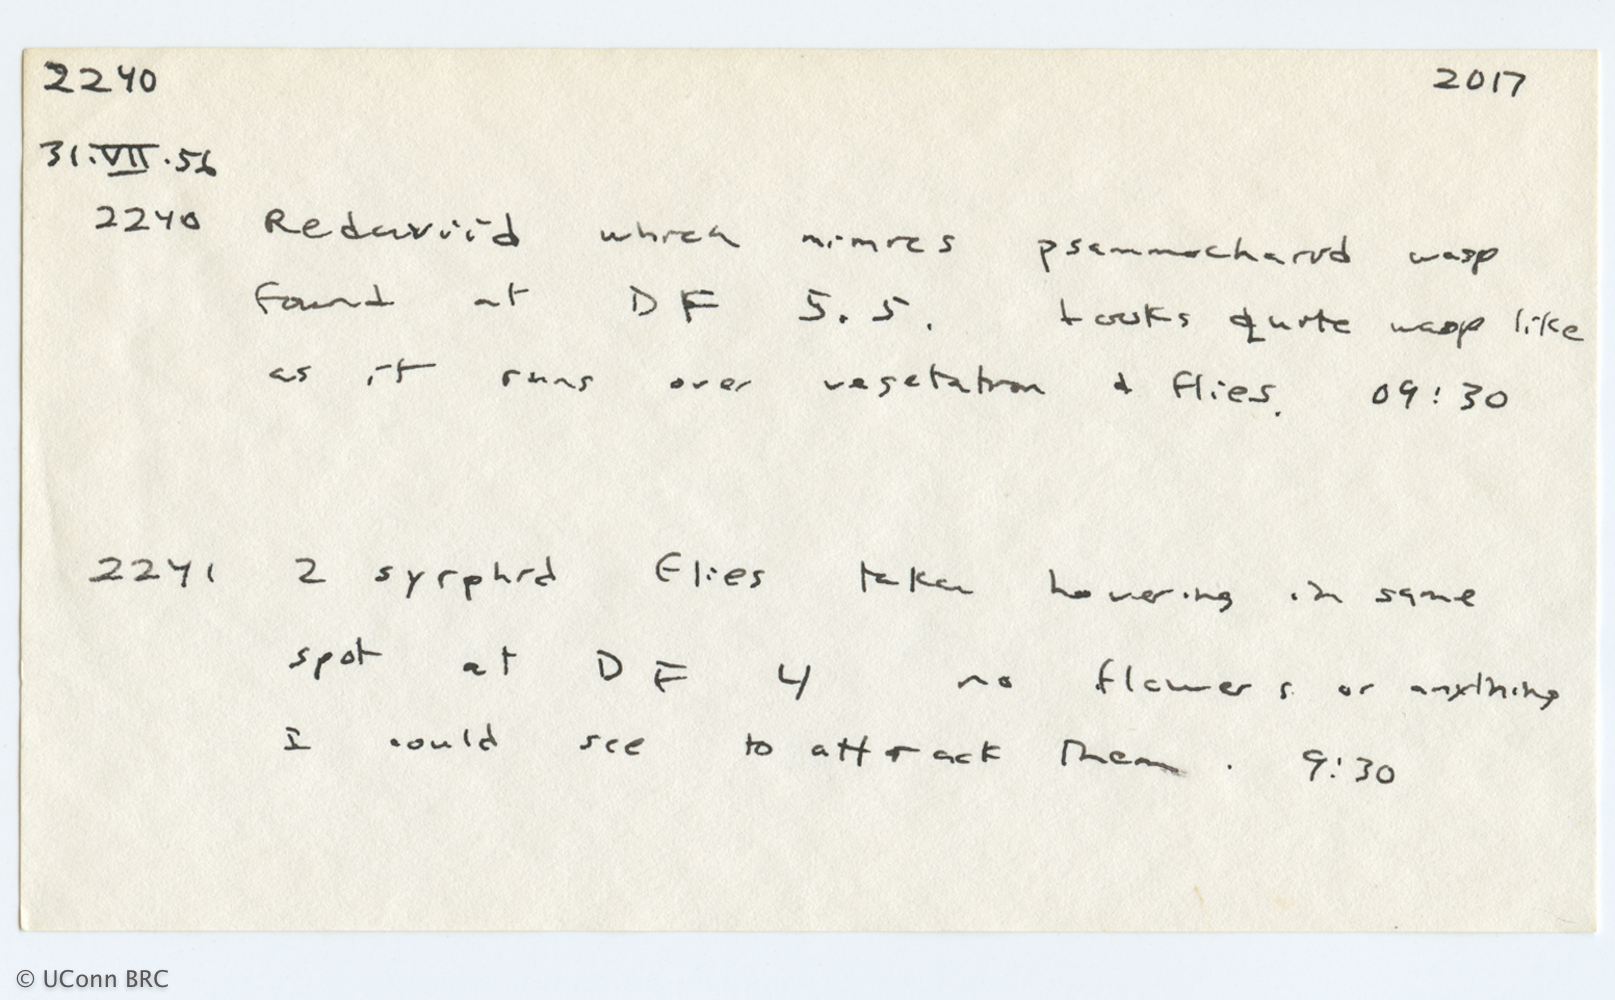 2240 2017
31.VII.56
2240 Reduviid which mimics psammocharid wasp
found at DF 5.5. Looks quite wasp like
as it runs over vegetation & flies. 09:30
2241 2 syrphid flies taken hovering in same
spot at DF 4 no flowers or anything
I could see to attrack them. 9:30
© UConn BRC